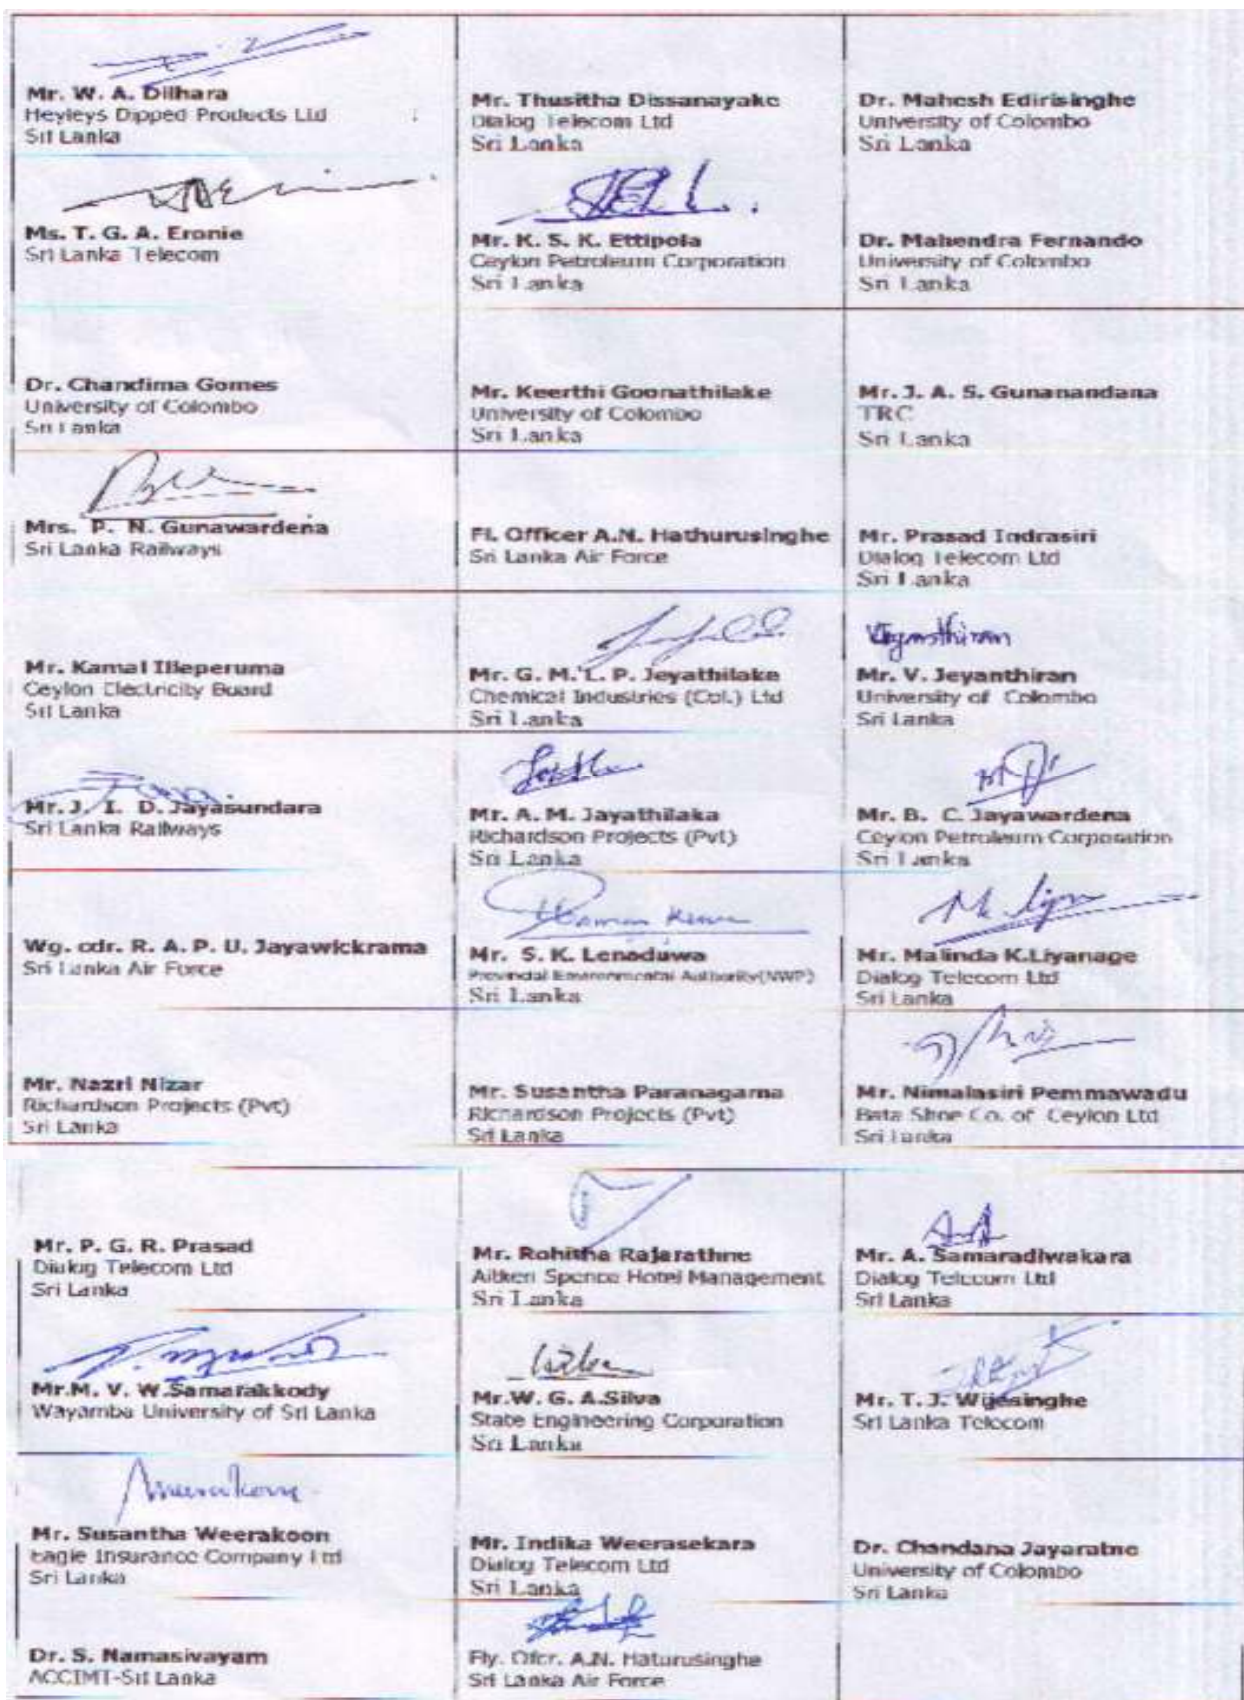 Mr. W. A. Dilhara
Heyleys Dipped Products Ltd
Sri Lanka
Mr. Thusitha Dissanayake
Dialog Telecom Ltd
Sri Lanka
Dr. Mahesh Edirisinghe
University of Colombo
Sri Lanka
Ms. T. G. A. Eronie
Sri Lanka Telecom
Mr. K. S. K. Ettipola
Ceylon Petroleum Corporation
Sri Lanka
Dr. Mahendra Fernando
University of Colombo
Sri Lanka
Dr. Chandima Gomes
University of Colombo
Sri Lanka
Mr. Keerthi Goonathilake
University of Colombo
Sri Lanka
Mr. J. A. S. Gunanandana
TRC
Sri Lanka
Mrs. P. N. Gunawardena
Sri Lanka Railways
Fl. Officer A.N. Hathurusinghe
Sri Lanka Air Force
Mr. Prasad Indrasiri
Dialog Telecom Ltd
Sri Lanka
Mr. Kamal Illeperuma
Ceylon Electricity Board
Sri Lanka
Mr. G. M. L. P. Jeyathilake
Chemical Industries (Col.) Ltd
Sri Lanka
Mr. V. Jeyanthiran
University of Colombo
Sri Lanka
Mr. J. I. D. Jayasundara
Sri Lanka Railways
Mr. A. M. Jayathilaka
Richardson Projects (Pvt)
Sri Lanka
Mr. B. C. Jayawardena
Ceylon Petroleum Corporation
Sri Lanka
Wg. cdr. R. A. P. U. Jayawickrama
Sri Lanka Air Force
Mr. S. K. Lenaduwa
Provincial Environmental Authority(NWP)
Sri Lanka
Mr. Malinda K.Liyanage
Dialog Telecom Ltd
Sri Lanka
Mr. Nazri Nizar
Richardson Projects (Pvt)
Sri Lanka
Mr. Susantha Paranagama
Richardson Projects (Pvt)
Sri Lanka
Mr. Nimalasiri Pemmawadu
Bata Shoe Co. of Ceylon Ltd
Sri Lanka
Mr. P. G. R. Prasad
Dialog Telecom Ltd
Sri Lanka
Mr. Rohitha Rajarathne
Aitken Spence Hotel Management
Sri Lanka
Mr. A. Samaradiwakara
Dialog Telecom Ltd
Sri Lanka
Mr.M. V. W.Samarakkody
Wayamba University of Sri Lanka
Mr.W. G. A.Silva
State Engineering Corporation
Sri Lanka
Mr. T. J. Wijesinghe
Sri Lanka Telecom
Mr. Susantha Weerakoon
Eagle Insurance Company Ltd
Sri Lanka
Mr. Indika Weerasekara
Dialog Telecom Ltd
Sri Lanka
Dr. Chandana Jayaratne
University of Colombo
Sri Lanka
Dr. S. Namasivayam
ACCIMT-Sri Lanka
Fly. Ofcr. A.N. Haturusinghe
Sri Lanka Air Force